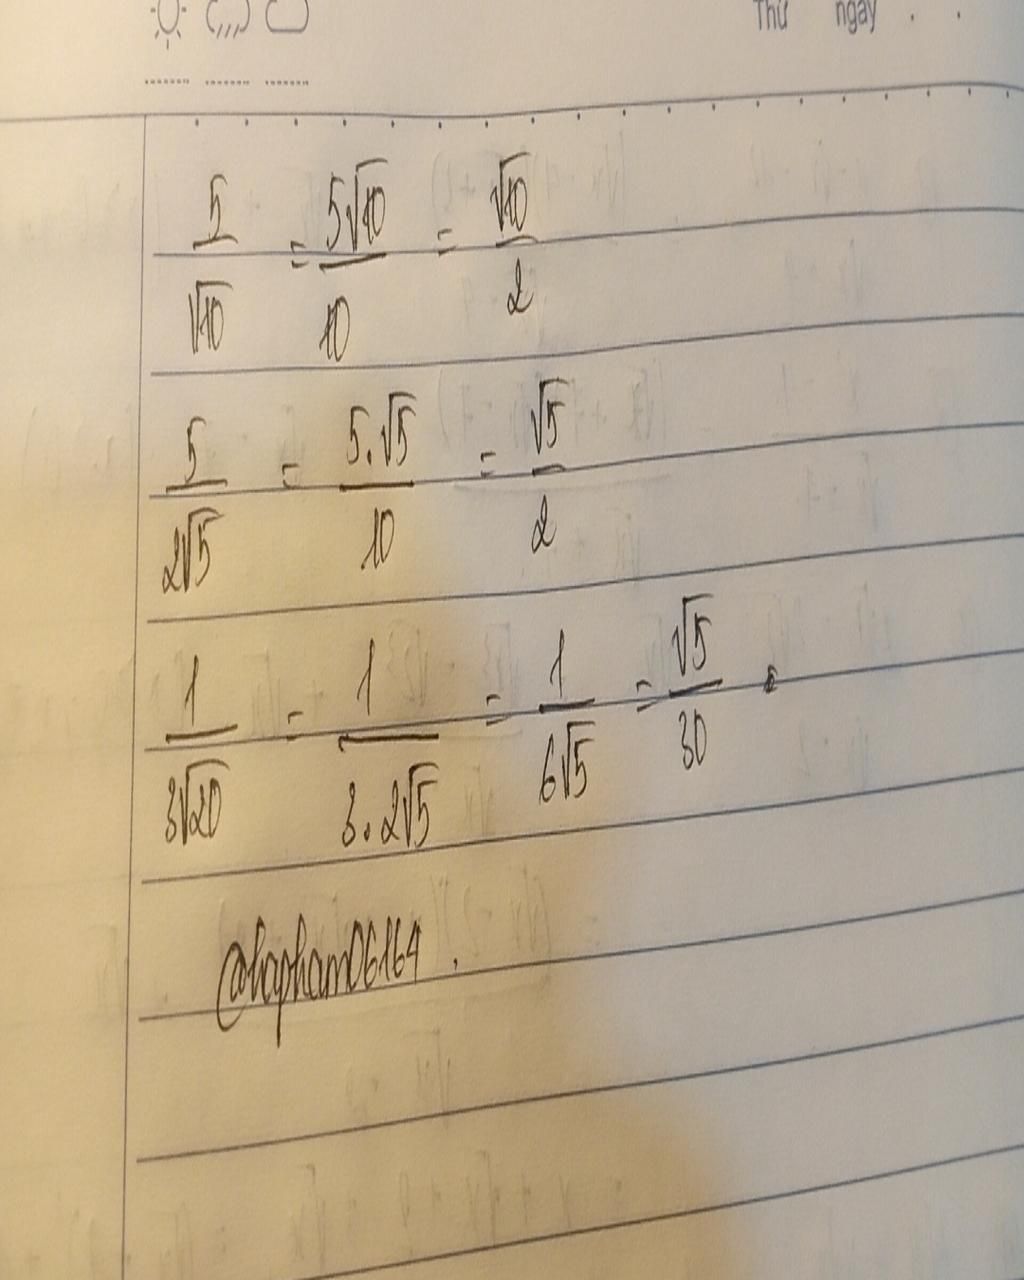 Thứ ngày . .
5/√10 = 5√10/10 = √10/2
5/2√5 = 5.√5/10 = √5/2
1/3√20 = 1/3.2√5 = 1/6√5 = √5/30 .
@hapham06164 .